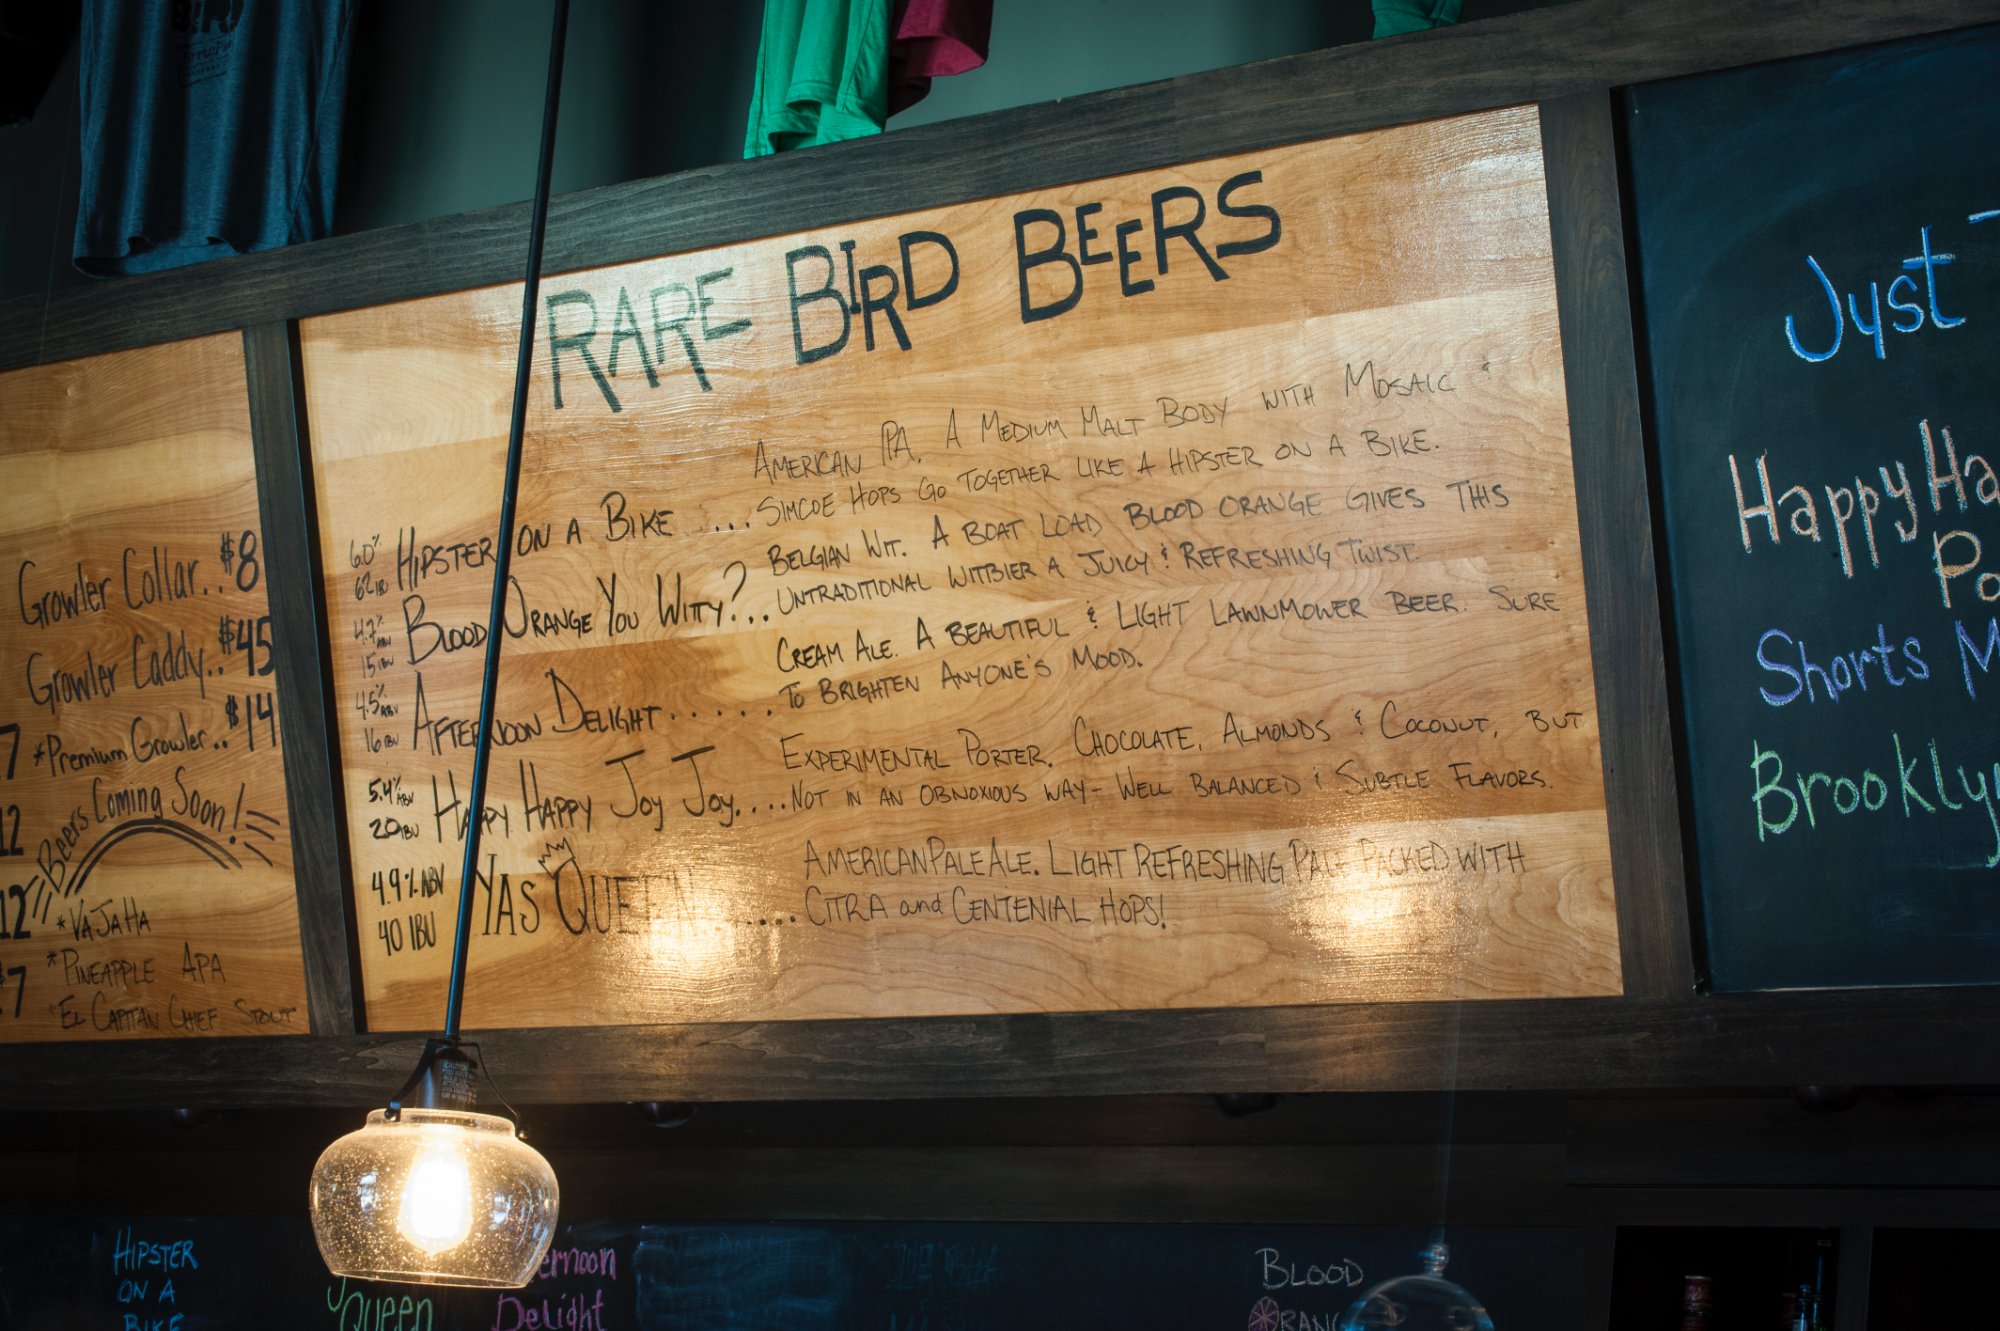 BIRD
BrewPub
Growler Collar..$8
Growler Caddy..$45
7 *Premium Growler..$14
12
Beers Coming Soon!
12
*VAJAHA
7 *PINEAPPLE APA
*EL CAPITAN CHIEF STOUT
RARE BIRD BEERS
6.0%
62 IBU
HIPSTER ON A BIKE.....
AMERICAN IPA. A MEDIUM MALT BODY WITH MOSAIC &
SIMCOE HOPS GO TOGETHER LIKE A HIPSTER ON A BIKE.
4.7%
ABV
15 IBU
BLOOD ORANGE YOU WITTY?...
BELGIAN WIT. A BOAT LOAD BLOOD ORANGE GIVES THIS
UNTRADITIONAL WITBIER A JUICY & REFRESHING TWIST.
4.5%
ABV
16 IBU
AFTERNOON DELIGHT......
CREAM ALE. A BEAUTIFUL & LIGHT LAWNMOWER BEER. SURE
TO BRIGHTEN ANYONE'S MOOD.
5.4% ABV
20 IBU
HAPPY HAPPY JOY JOY....
EXPERIMENTAL PORTER. CHOCOLATE, ALMONDS & COCONUT, BUT
NOT IN AN OBNOXIOUS WAY- WELL BALANCED & SUBTLE FLAVORS.
4.9% ABV
40 IBU
YAS QUEEN......
AMERICAN PALE ALE. LIGHT REFRESHING PALE PACKED WITH
CITRA and CENTENIAL HOPS!
Just
Happy Ha
Po
Shorts M
Brooklyn
HIPSTER
ON A
BIKE
Queen
ernoon
Delight
BLOOD
ORANG